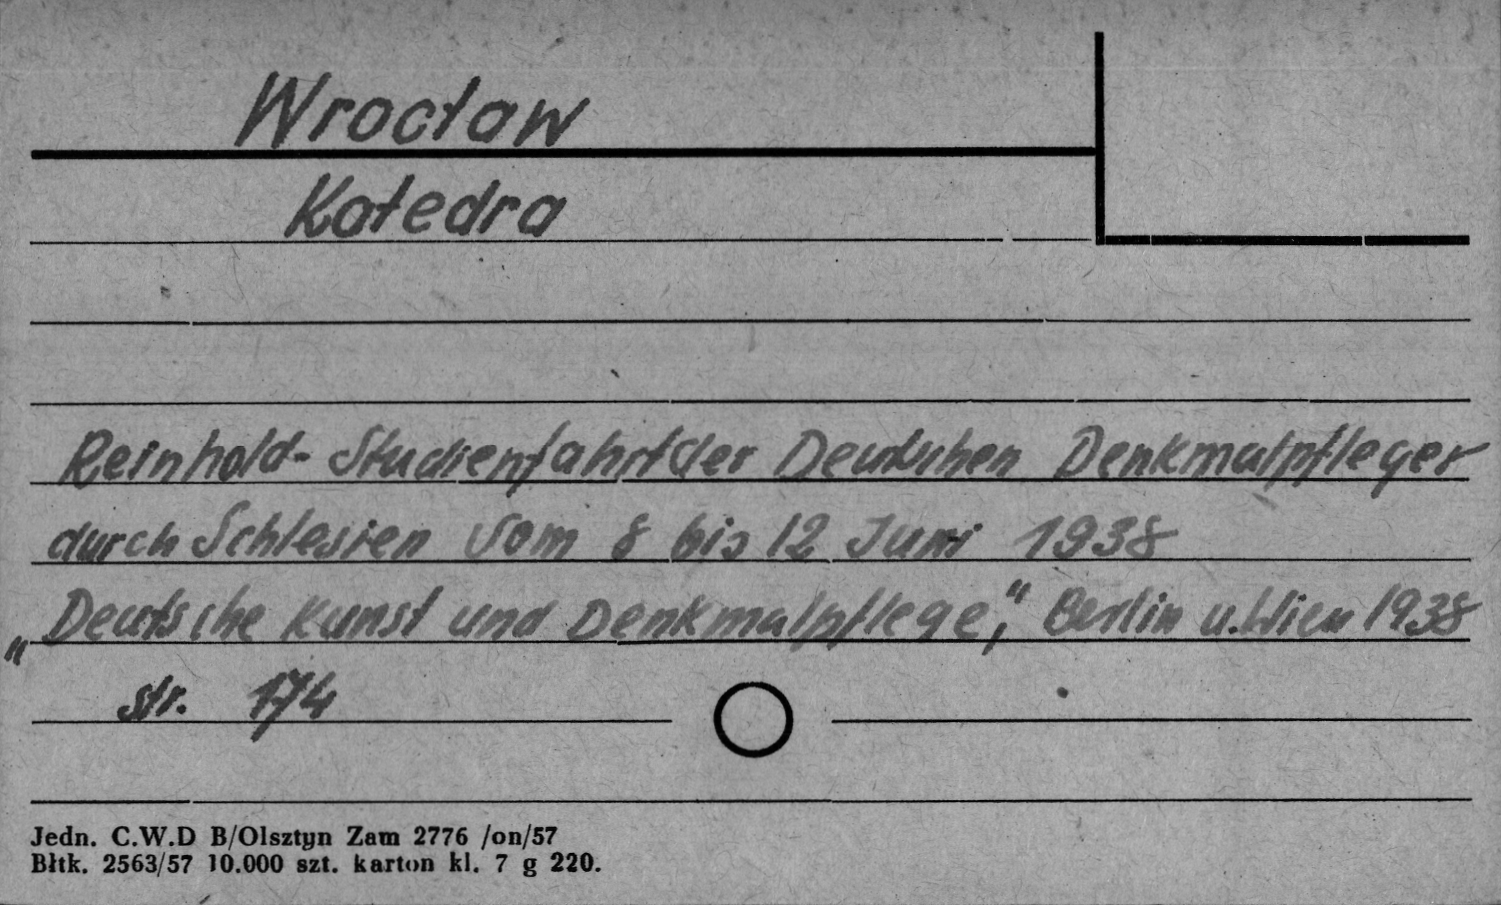 Wrocław
Katedra
Reinhold - Studienfahrt der Deutschen Denkmalpfleger
durch Schlesien vom 8 bis 12 Juni 1938
„Deutsche Kunst und Denkmalpflege," Berlin u. Wien 1938
str. 174
Jedn. C.W.D B/Olsztyn Zam 2776 /on/57
Błtk. 2563/57 10.000 szt. karton kl. 7 g 220.